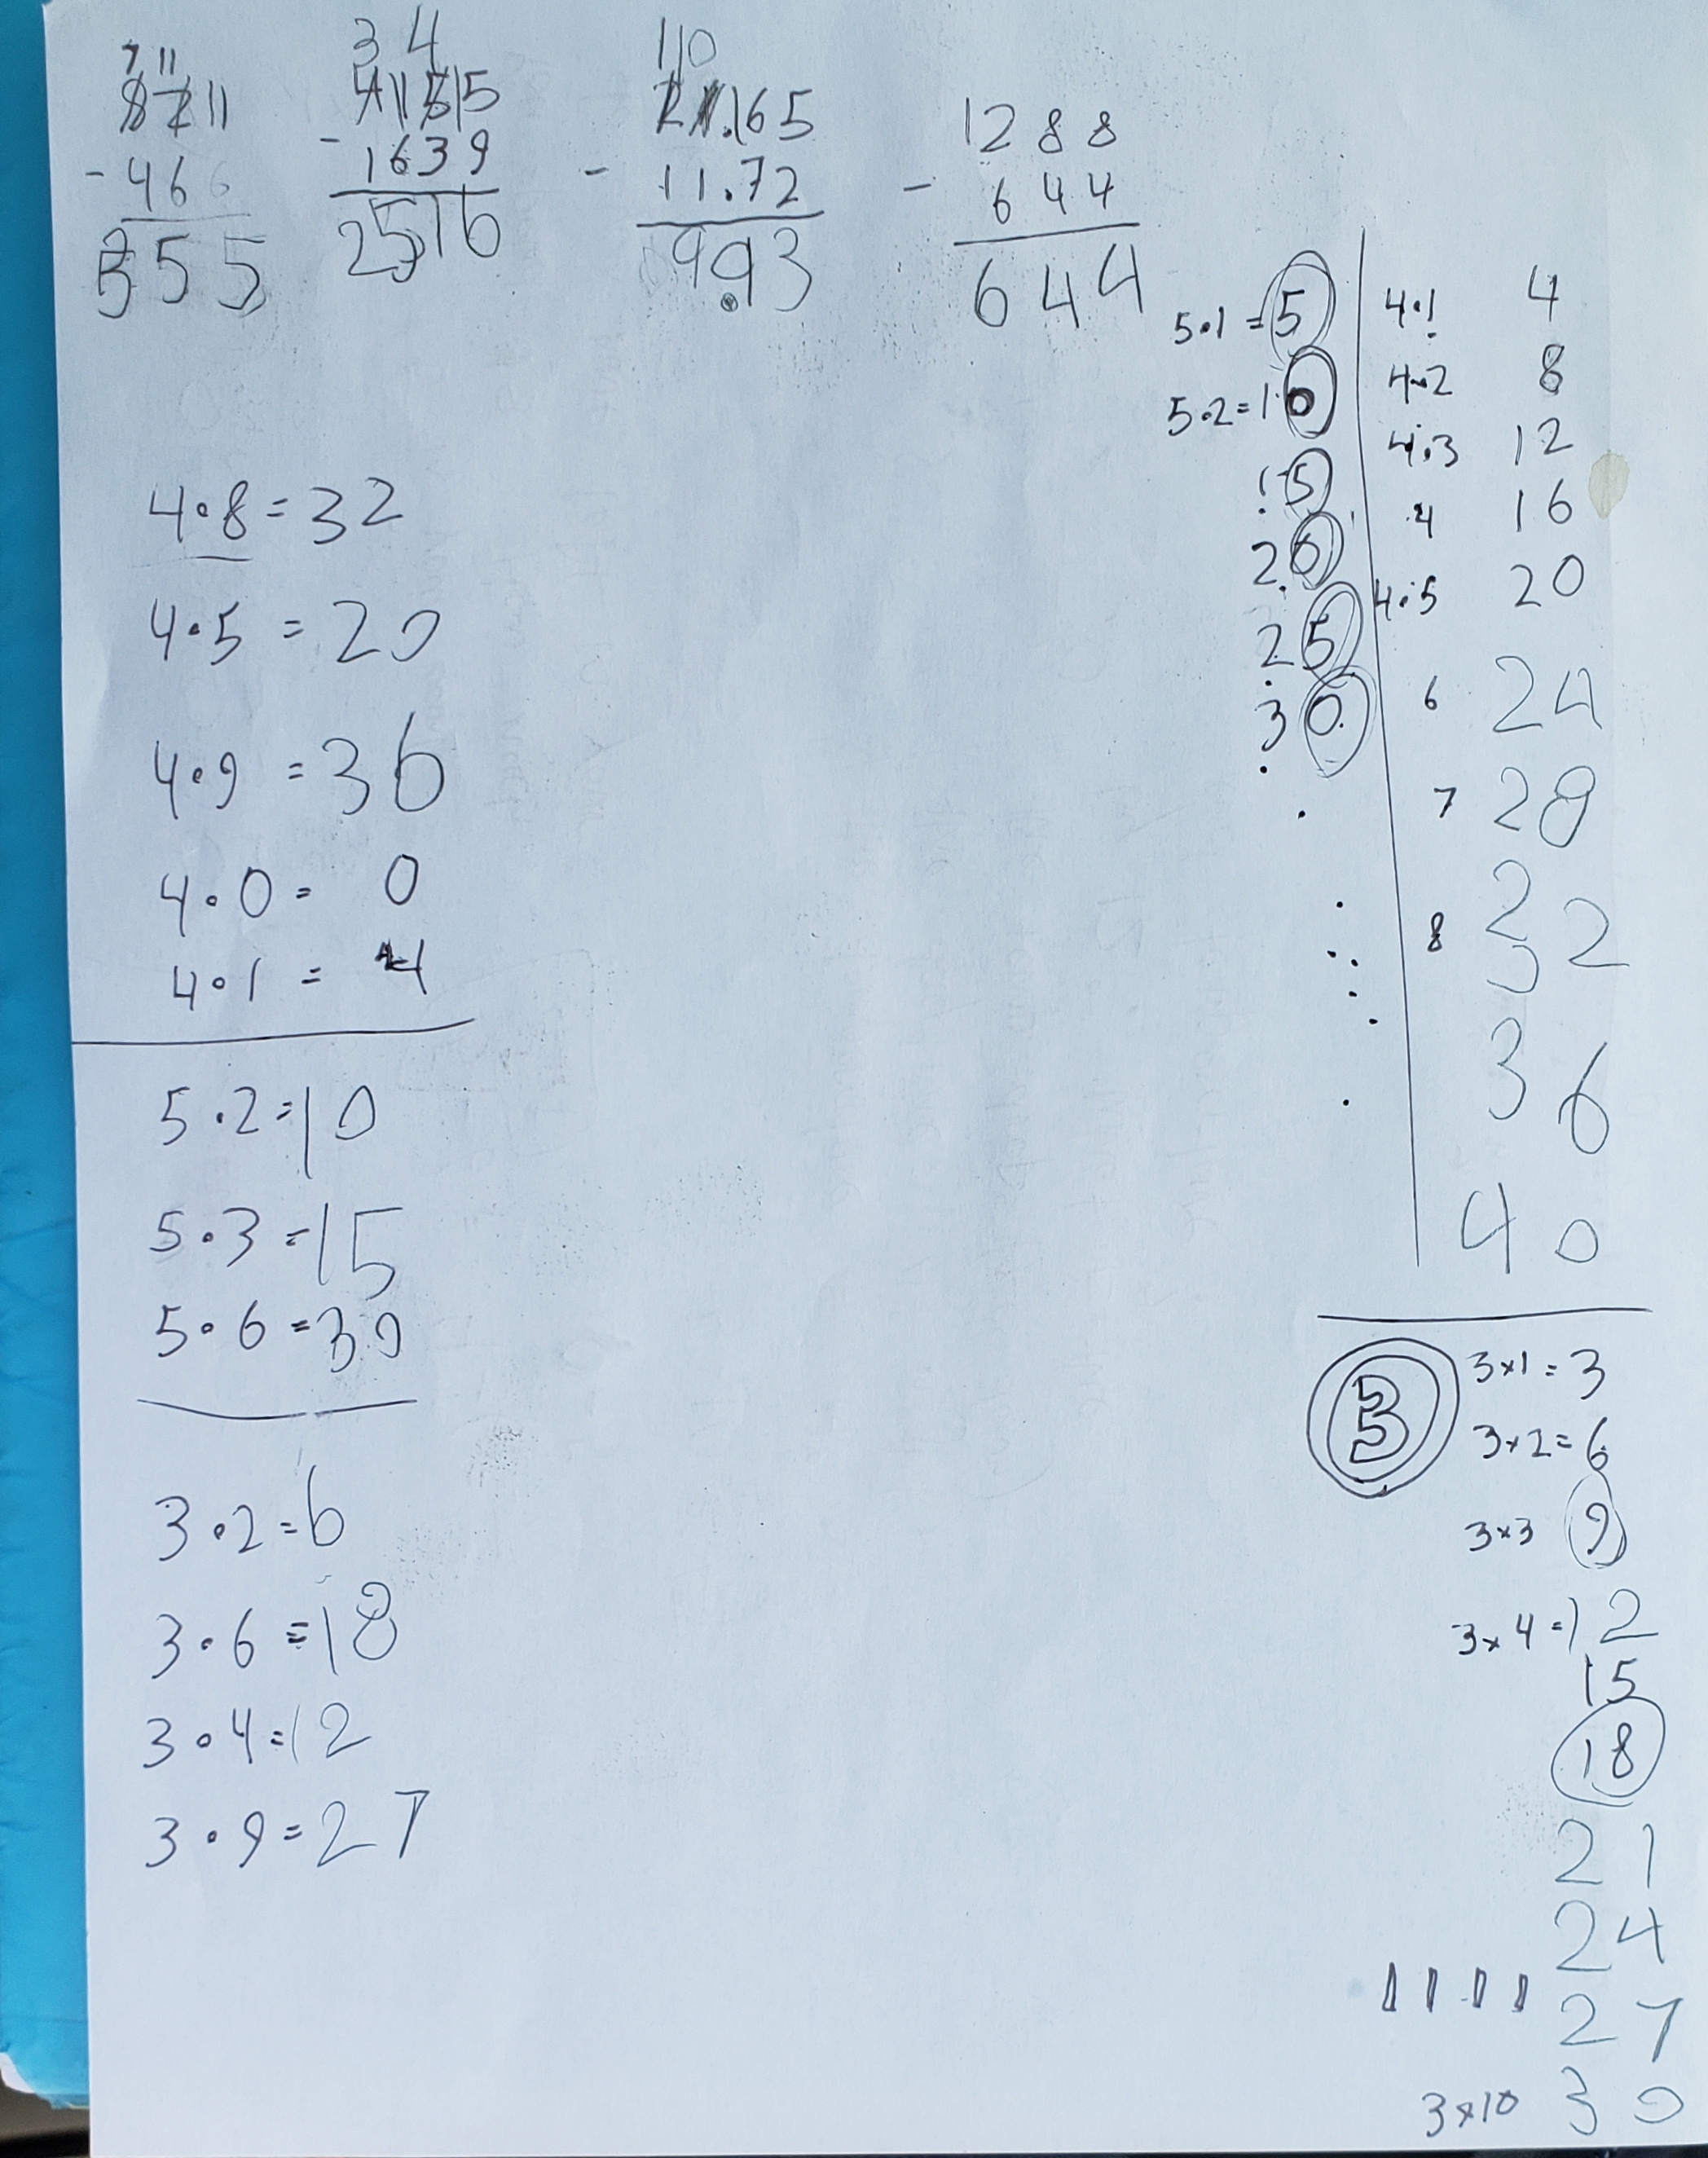 7 11
8 2 11
- 4 6 6
3 5 5
3 4
4 11 5 15
- 1639
2516
1 10
2 1.165
- 11.72
9.93
1288
- 644
644
4·8=32
4·5=20
4·9=36
4·0=0
4·1=4
5·2=10
5·3=15
5·6=30
3·2=6
3·6=18
3·4=12
3·9=27
5·1=5
5·2=10
15
20
25
30
4·1 4
4·2 8
4·3 12
·4 16
4·5 20
6 24
7 28
8 32
36
40
3
3×1=3
3×2=6
3×3 9
3×4=12
15
18
21
24
27
3×10 30